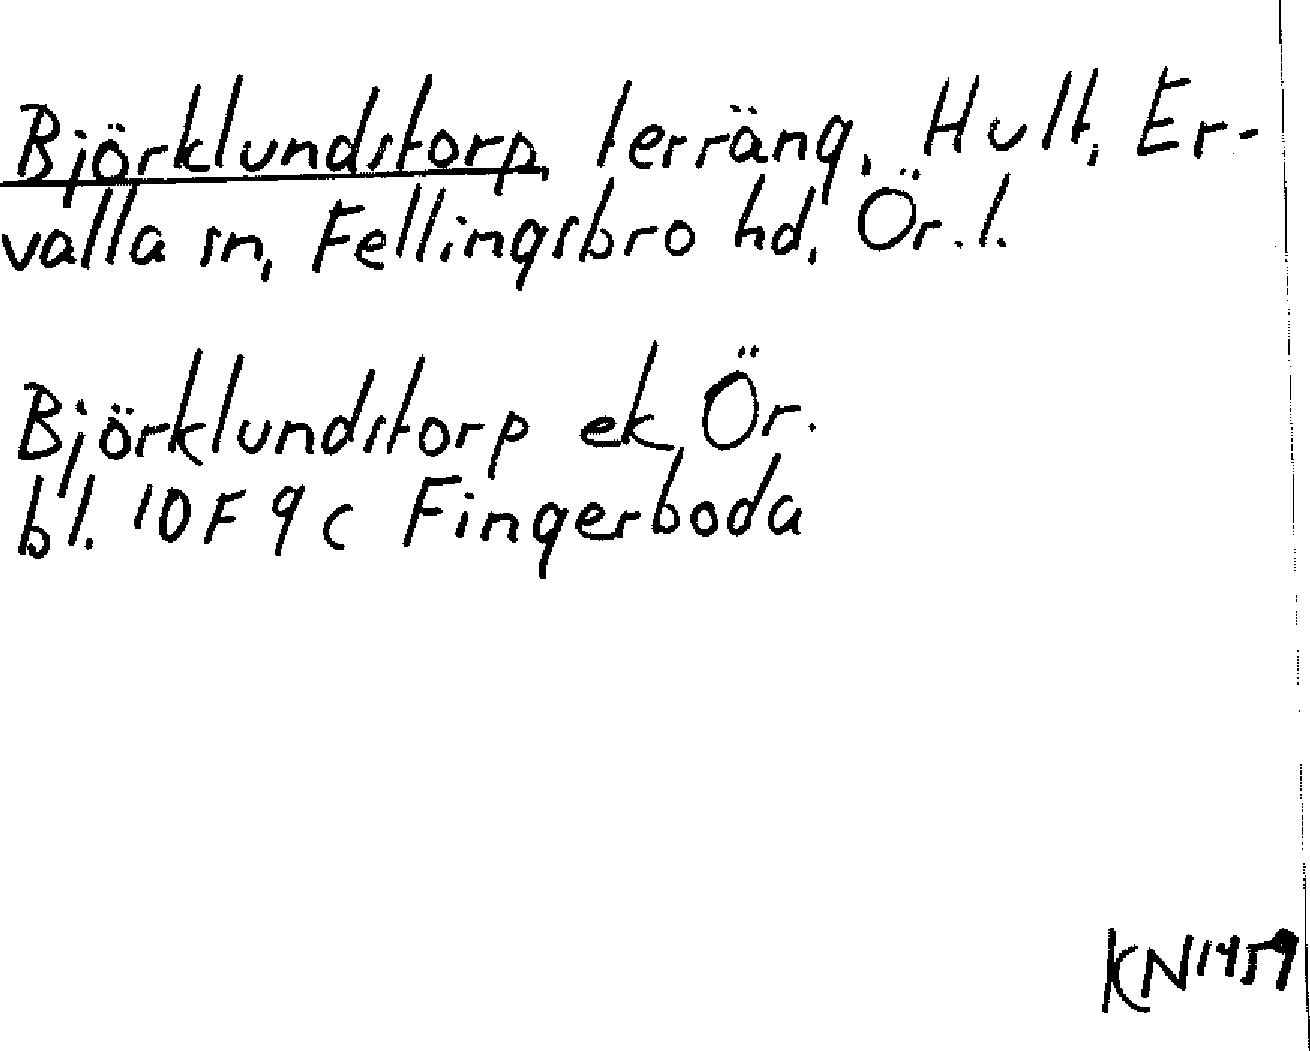 Björklundstorp, terräng, Hult, Er-
valla sn, Fellingsbro hd, Ör. l.
Björklundstorp ek, Ör.
bl. 10F 9c Fingerboda
KN1459